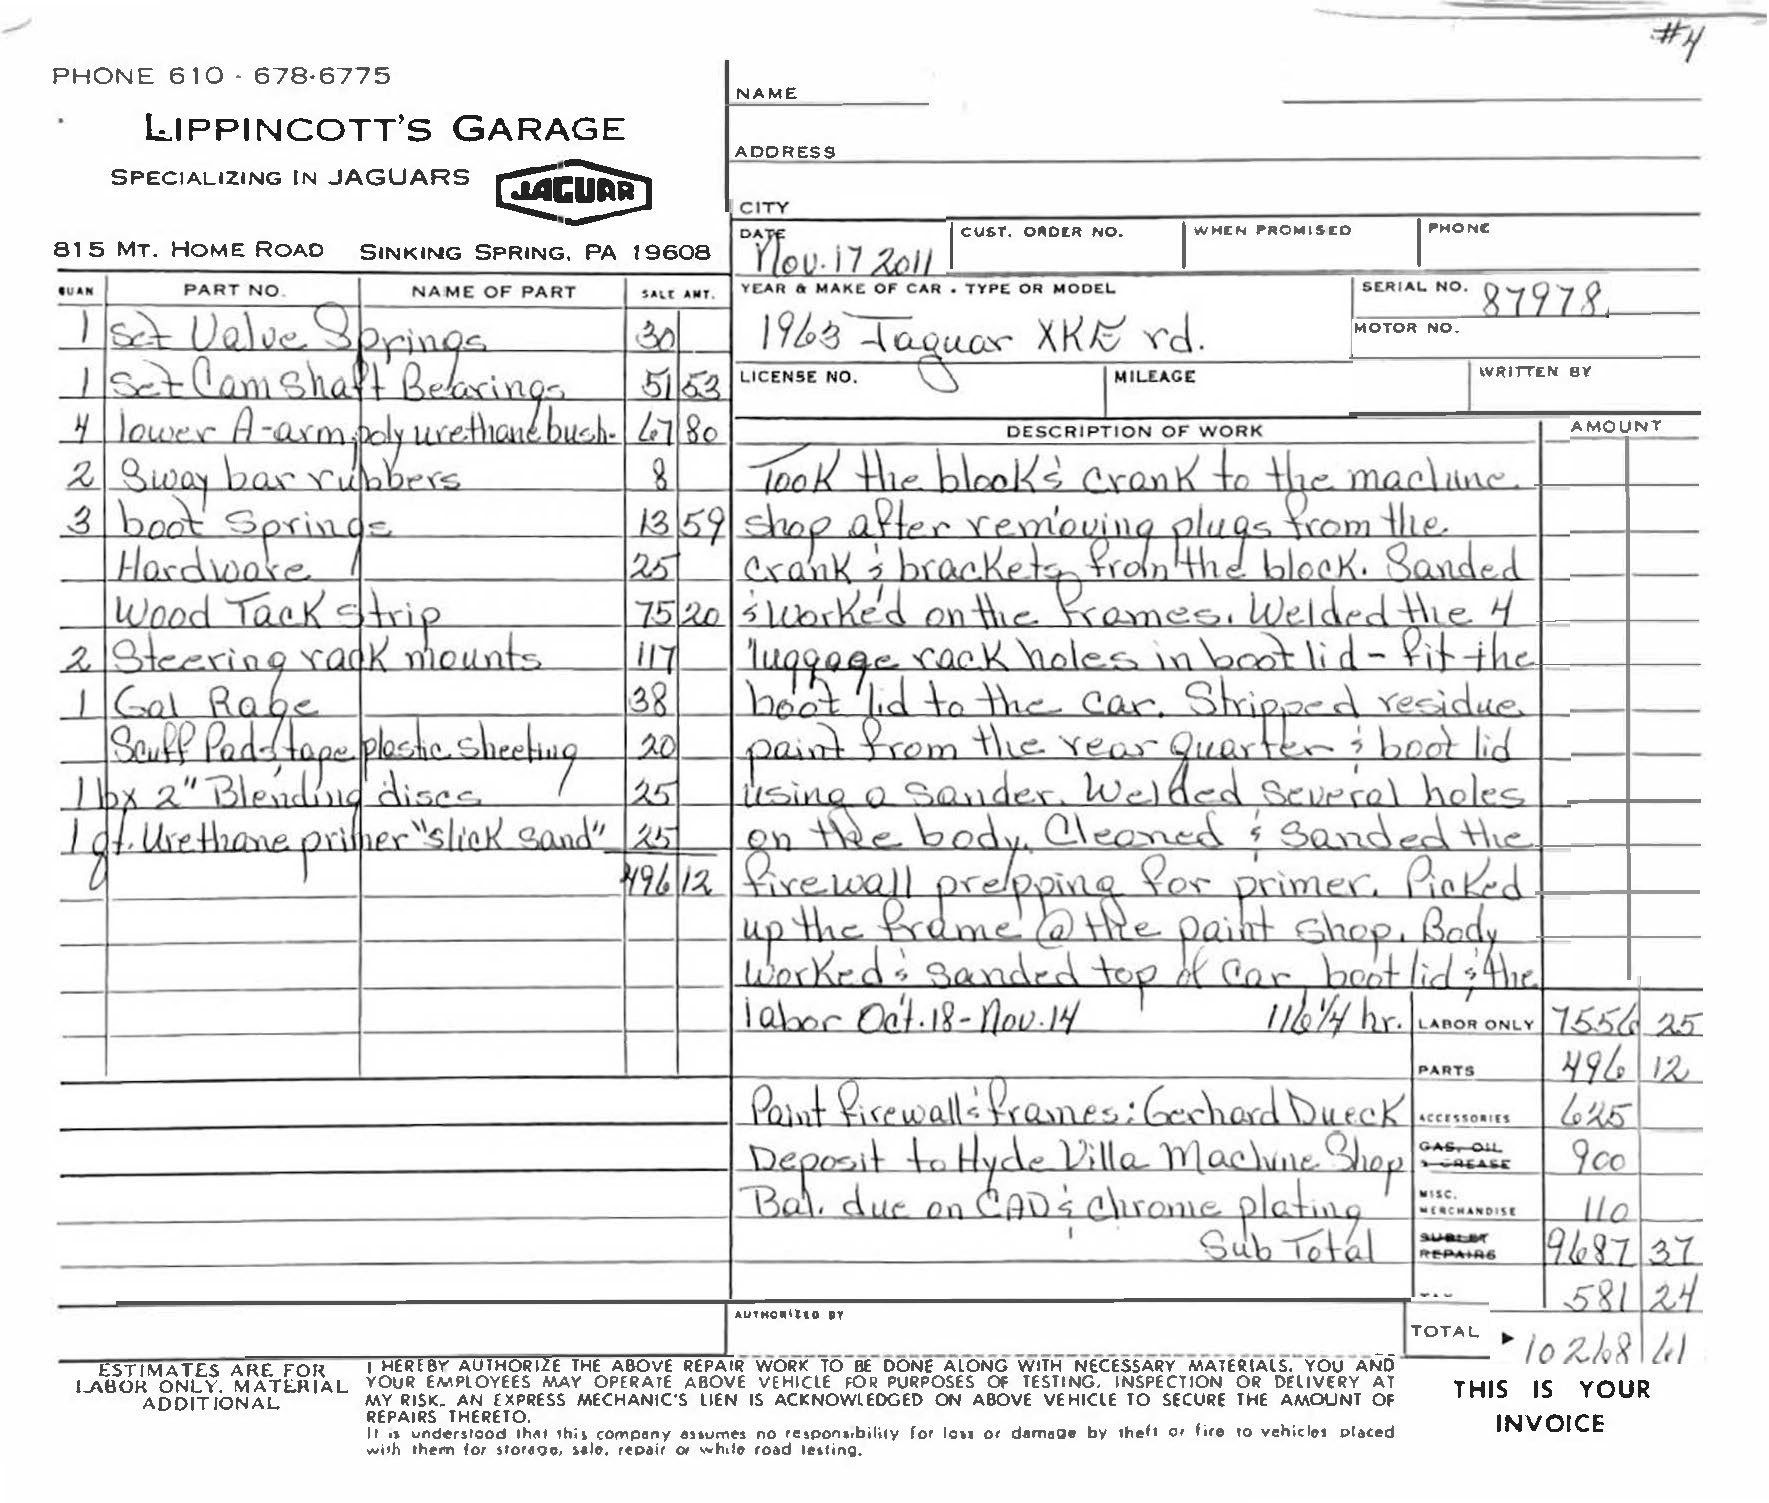 #4
PHONE 610 - 678-6775
LIPPINCOTT'S GARAGE
SPECIALIZING IN JAGUARS
JAGUAR
815 MT. HOME ROAD SINKING SPRING, PA 19608
NAME
ADDRESS
CITY
DATE Nov. 17 2011
CUST. ORDER NO.
WHEN PROMISED
PHONE
YEAR & MAKE OF CAR - TYPE OR MODEL
1963 Jaguar XKE rd.
SERIAL NO. 87978
MOTOR NO.
LICENSE NO.
MILEAGE
WRITTEN BY
QUAN PART NO. NAME OF PART SALE AMT.
1 Set Valve Springs 30
1 Set Camshaft Bearings 51 53
4 lower A-arm polyurethane bush. 67 80
2 Sway bar rubbers 8
3 boot Springs 13 59
Hardware 25
Wood Tack strip 75 20
2 Steering rack mounts 117
1 Gal Rage 38
Scuff Pads, tape, plastic sheeting 20
1 bx 2" Blending discs 25
1 qt. Urethane primer "slick sand" 25
496 12
DESCRIPTION OF WORK AMOUNT
Took the block & crank to the machine
shop after removing plugs from the
crank & brackets from the block. Sanded
& worked on the frames. Welded the 4
luggage rack holes in boot lid - fit the
boot lid to the car. Stripped residue
paint from the rear quarter & boot lid
using a sander. Welded several holes
on the body. Cleaned & sanded the
firewall prepping for primer. Picked
up the frame @ the paint shop. Body
worked & sanded top of car, boot lid & the
labor Oct. 18 - Nov. 14 116 1/4 hr. LABOR ONLY 7556 25
PARTS 496 12
Paint firewall & frames: Gerhard Dueck ACCESSORIES 625
Deposit to Hyde Villa Machine Shop GAS, OIL & GREASE 900
Bal. due on CAD & chrome plating MISC. MERCHANDISE 110
Sub Total SUBLET REPAIRS 9687 37
581 24
AUTHORIZED BY
TOTAL 10268 61
ESTIMATES ARE FOR
LABOR ONLY. MATERIAL
ADDITIONAL
I HEREBY AUTHORIZE THE ABOVE REPAIR WORK TO BE DONE ALONG WITH NECESSARY MATERIALS. YOU AND
YOUR EMPLOYEES MAY OPERATE ABOVE VEHICLE FOR PURPOSES OF TESTING, INSPECTION OR DELIVERY AT
MY RISK. AN EXPRESS MECHANIC'S LIEN IS ACKNOWLEDGED ON ABOVE VEHICLE TO SECURE THE AMOUNT OF
REPAIRS THERETO.
It is understood that this company assumes no responsibility for loss or damage by theft or fire to vehicles placed
with them for storage, sale, repair or while road testing.
THIS IS YOUR
INVOICE